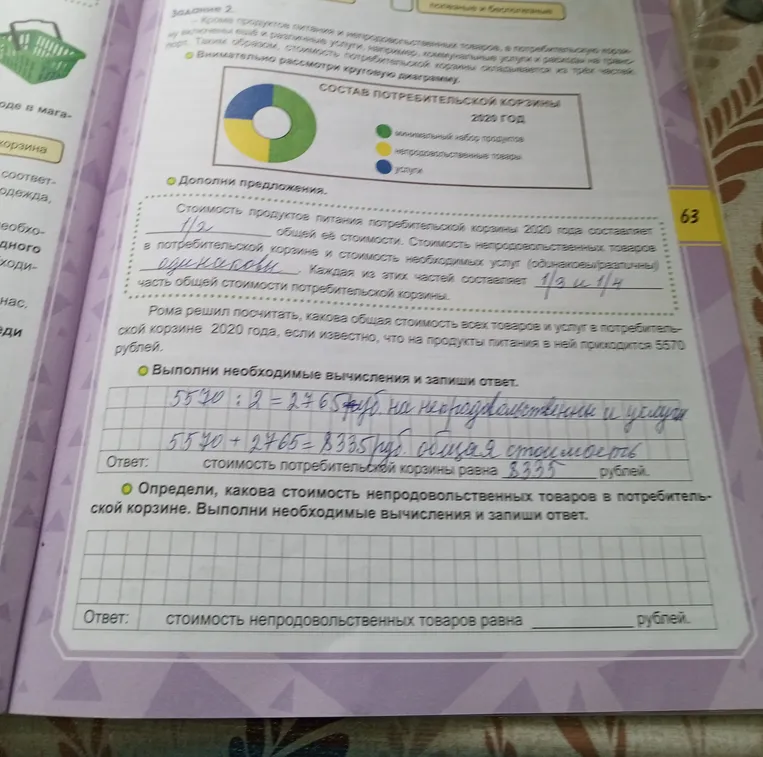 полезные и бесполезные
Задание 2.
– Кроме продуктов питания и непродовольственных товаров, в потребительскую корзи-
ну включены ещё и различные услуги, например, коммунальные услуги и расходы на транс-
порт. Таким образом, стоимость потребительской корзины складывается из трёх частей.
Внимательно рассмотри круговую диаграмму.
СОСТАВ ПОТРЕБИТЕЛЬСКОЙ КОРЗИНЫ
2020 ГОД
минимальный набор продуктов
непродовольственные товары
услуги
Дополни предложения.
Стоимость продуктов питания потребительской корзины 2020 года составляет
1/2 общей её стоимости. Стоимость непродовольственных товаров
в потребительской корзине и стоимость необходимых услуг (одинаковы/различны)
одинаковы. Каждая из этих частей составляет 1/3 и 1/4
часть общей стоимости потребительской корзины.
63
Рома решил посчитать, какова общая стоимость всех товаров и услуг в потребитель-
ской корзине 2020 года, если известно, что на продукты питания в ней приходится 5570
рублей.
Выполни необходимые вычисления и запиши ответ.
5570 : 2 = 2765 руб. на непродовольственны и услуги
5570 + 2765 = 8335 руб. общая стоимость
Ответ: стоимость потребительской корзины равна 8335 рублей.
Определи, какова стоимость непродовольственных товаров в потребитель-
ской корзине. Выполни необходимые вычисления и запиши ответ.
Ответ: стоимость непродовольственных товаров равна ____________ рублей.
оде в мага-
корзина
соответ-
одежда,
еобхо-
дного
ходи-
нас.
еди